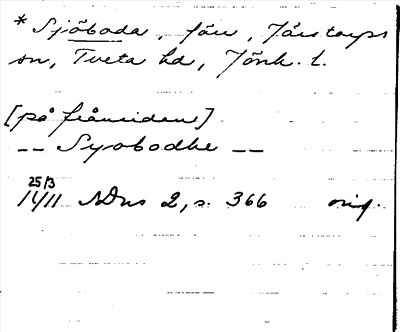 * Sjöboda, förr, Järstorps
sn, Tveta hd, Jönk. l.
[på frånsidan]
-- Syobodhe --
25/3
1411 SDns 2, s. 366 orig.